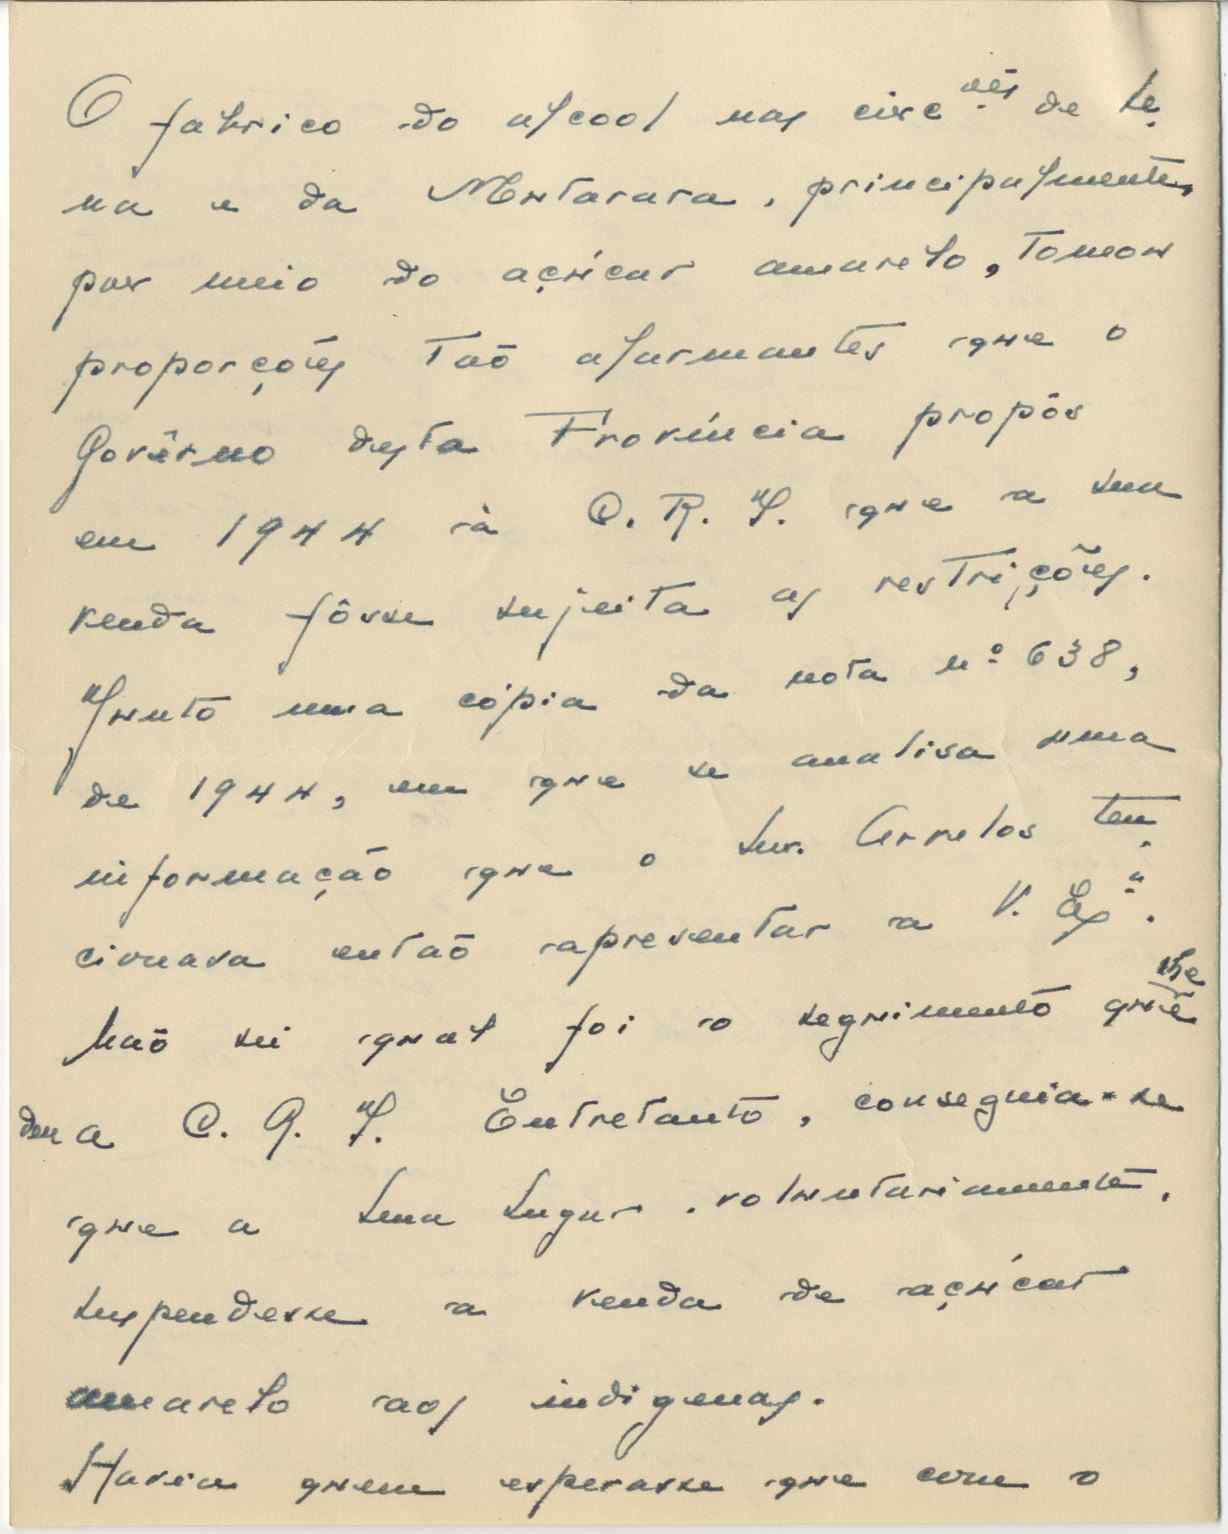 O fabrico do alcool nas circ ões de Se
na e da Mutarara, principalmente,
por meio do açúcar amarelo, tomou
proporções taõ alarmantes que o
Govêrno desta Província propôs
em 1944 à C. R. I. que a sua
venda fôsse sujeita as restrições.
Junto uma cópia da nota nº 638,
de 1944, em que se analisa uma
informação que o Snr. Arrelos ten
cionava entaõ apresentar a V. Exª.
Naõ sei qual foi o seguimento que lhe
deu a C. G. I. Entretanto, conseguia-se
que a Sena Sugar, voluntariamente,
suspendesse a venda de açúcar
amarelo aos indigenas.
Havia quem esperasse que com o